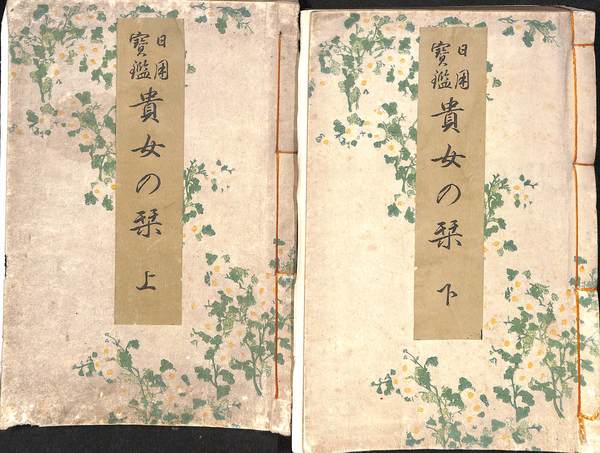 日用
寶鑑
貴女の栞
上
日用
寶鑑
貴女の栞
下